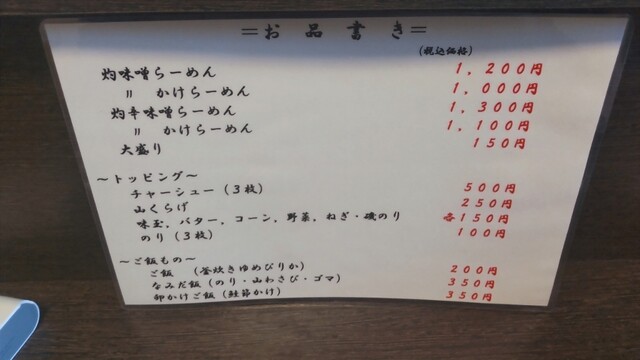 ＝お品書き＝
（税込価格）
灼味噌らーめん １，２００円
〃 かけらーめん １，０００円
灼辛味噌らーめん １，３００円
〃 かけらーめん １，１００円
大盛り １５０円
～トッピング～
チャーシュー（３枚） ５００円
山くらげ ２５０円
味玉，バター，コーン，野菜，ねぎ・磯のり 各１５０円
のり（３枚） １００円
～ご飯もの～
ご飯 （釜炊きゆめぴりか） ２００円
なみだ飯（のり・山わさび・ゴマ） ３５０円
卵かけご飯（鮭節かけ） ３５０円